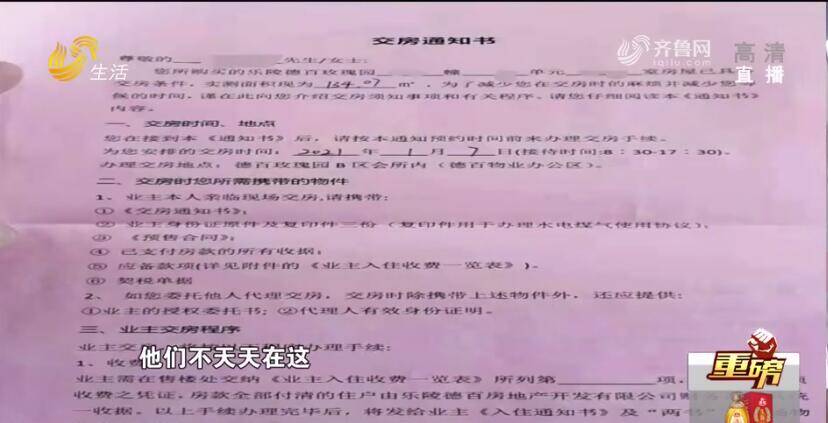 交房通知书
生活
齐鲁网
iqilu.com
高清
直播
尊敬的 先生/女士：
您所购买的乐陵德百玫瑰园 幢 单元 室房屋已具
交房条件，实测面积现为164.07 m²，为了减少您在交房时的麻烦并减少您等
候的时间，谨在此向您介绍交房须知事项和有关程序。请您仔细阅读本《通知书》
内容。
一、交房时间、地点
您在接到本《通知书》后，请按本通知预约时间前来办理交房手续。
为您安排的交房时间：2021年1月7日(接待时间:8：30-17：30)。
办理交房地点：德百玫瑰园B区会所内（德百物业办公区）。
二、交房时您所需携带的物件
1、业主本人亲临现场交房,请携带：
①《交房通知书》；
② 业主身份证原件及复印件三份（复印件用于办理水电煤气使用协议）；
③ 《预售合同》；
④ 已支付房款的所有收据；
⑤ 应备款项(详见附件的《业主入住收费一览表》)。
⑥ 契税单据
2、如您委托他人代理交房，交房时除携带上述物件外，还应提供：
①业主的授权委托书；②代理人有效身份证明。
三、业主交房程序
业主交 办理手续：
他们不天天在这
1、收费
业主需在售楼处交纳《业主入住收费一览表》所列第 项，
收费之凭证，房款全部付清的住户由乐陵德百房地产开发有限公司财务
一收据。以上手续办理完毕后，将发给业主《入住通知书》及“两书”
重磅